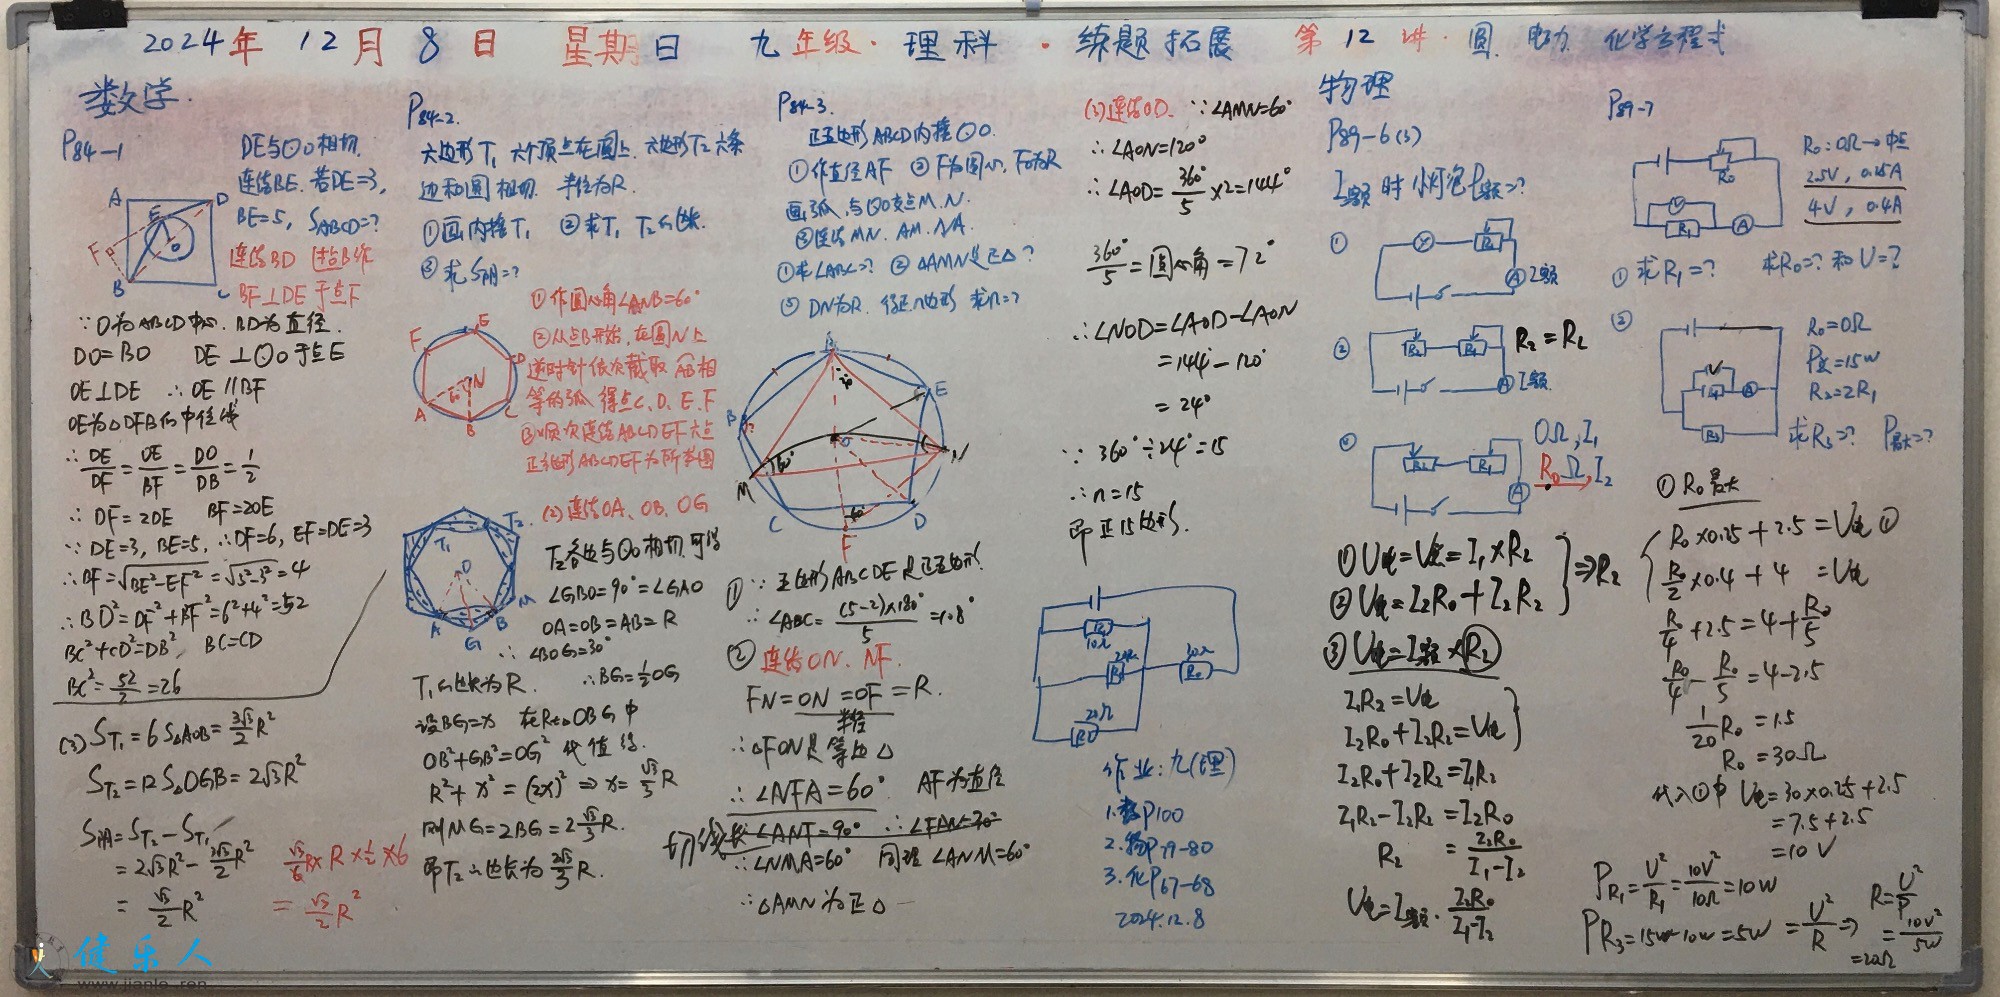 2024年 12月 8日 星期日 九年级·理科·练题拓展 第12讲·圆 电功 化学方程式
数学
P84-1
DE与⊙O相切.
连结BE. 若DE=3,
BE=5, SABCD=?
连结BD 过点B作
BF⊥DE于点F
A
D
E
F
O
B
C
∵O为ABCD中心. BD为直径.
DO=BO DE⊥⊙O于点E
OE⊥DE ∴OE∥BF
OE为△DFB的中位线
∴DE/DF=OE/BF=DO/DB=1/2
∴DF=2DE BF=2OE
∵DE=3, BE=5, ∴DF=6, EF=DE=3
∴BF=√BE²-EF²=√5²-3²=4
∴BD²=DF²+BF²=6²+4²=52
BC²+CD²=DB², BC=CD
BC²=52/2=26
(3) ST₁=6S△AOB=3√3/2R²
ST₂=12S△OGB=2√3R²
S阴=ST₂-ST₁
=2√3R²-3√3/2R²
=√3/2R²
√3/6R×R×1/2×6
=√3/2R²
P84-2.
六边形T₁ 六个顶点在圆上. 六边形T₂六条
边和圆相切. 半径为R.
①画内接T₁ ②求T₁ T₂的边长.
③求S阴=?
①作圆心角∠ANB=60°
②从点B开始, 在圆N上
逆时针依次截取AB相
等的弧 得点C、D、E、F
③顺次连结ABCDEF六点
正六边形ABCDEF为所求图
F
E
D
N
60°
A
B
C
(2)连结OA、OB、OG
T₂各边与⊙O相切.可得
∠GBO=90°=∠GAO
OA=OB=AB=R
∴∠BOG=30°
∴BG=1/2OG
T₂
T₁
O
M
A
G
B
T₁的边长为R.
设BG=x 在Rt△OBG中
OB²+GB²=OG² 代值得.
R²+x²=(2x)² ⇒x=√3/3R
则MG=2BG=2√3/3R.
即T₂的边长为2√3/3R.
P84-3.
正五边形ABCD内接⊙O.
①作直径AF ②F为圆心, FO为R
画弧,与⊙O交点M.N.
③连结MN. AM. NA.
①求∠ABC=? ②△AMN是正△?
③DN为R. 得正n边形 求n=?
B
E
O
N
M
60°
C
D
F
①∵五边形ABCDE是正五边形.
∴∠ABC=(5-2)×180°/5=108°
②连结ON. NF.
FN=ON=OF=R.
半径
∴△FON是等边△
∴∠NFA=60° AF为直径
∴∠NMA=60° 同理∠ANM=60°
∴△AMN为正△
(3)连结OD. ∵∠AMN=60°
∴∠AON=120°
∴∠AOD=360°/5×2=144°
360°/5=圆心角=72°
∴∠NOD=∠AOD-∠AON
=144°-120°
=24°
∵360°÷24°=15
∴n=15
即正15边形.
10Ω
20Ω
30Ω
20Ω
作业:九(理)
1.数P100
2.物P79-80
3.化P67-68
2024.12.8
物理
P89-6(3)
I额时 小灯泡P额=?
①
A I额
②
R₂=R₂
A I额
0Ω, I₁
R₀Ω, I₂
①U电=U总=I₁×R₂
②U电=I₂R₀+I₂R₂
⇒R₂
③U电=I额×R₂
I₁R₂=U电
I₂R₀+I₂R₂=U电
I₂R₀+I₂R₂=I₁R₂
I₁R₂-I₂R₂=I₂R₀
R₂=I₂R₀/I₁-I₂
U电=I额·I₂R₀/I₁-I₂
P89-7
R₀
V
R₁
A
R₀: 0Ω→中点
2.5V, 0.25A
4V, 0.4A
①求R₁=? 求R₀=?和U=?
②
R₀=0Ω
P总=15W
R₂=2R₁
求R₃=? P最大=?
①R₀最大
R₀×0.25+2.5=U电①
R₀/2×0.4+4=U电
R₀/4+2.5=4+R₀/5
R₀/4-R₀/5=4-2.5
1/20R₀=1.5
R₀=30Ω
代入①中 U电=30×0.25+2.5
=7.5+2.5
=10V
PR₁=U²/R₁=10V²/10Ω=10W
PR₃=15W-10W=5W=U²/R⇒
R=U²/P
=10V²/5W
=20Ω
健乐人
www.jianle.ren